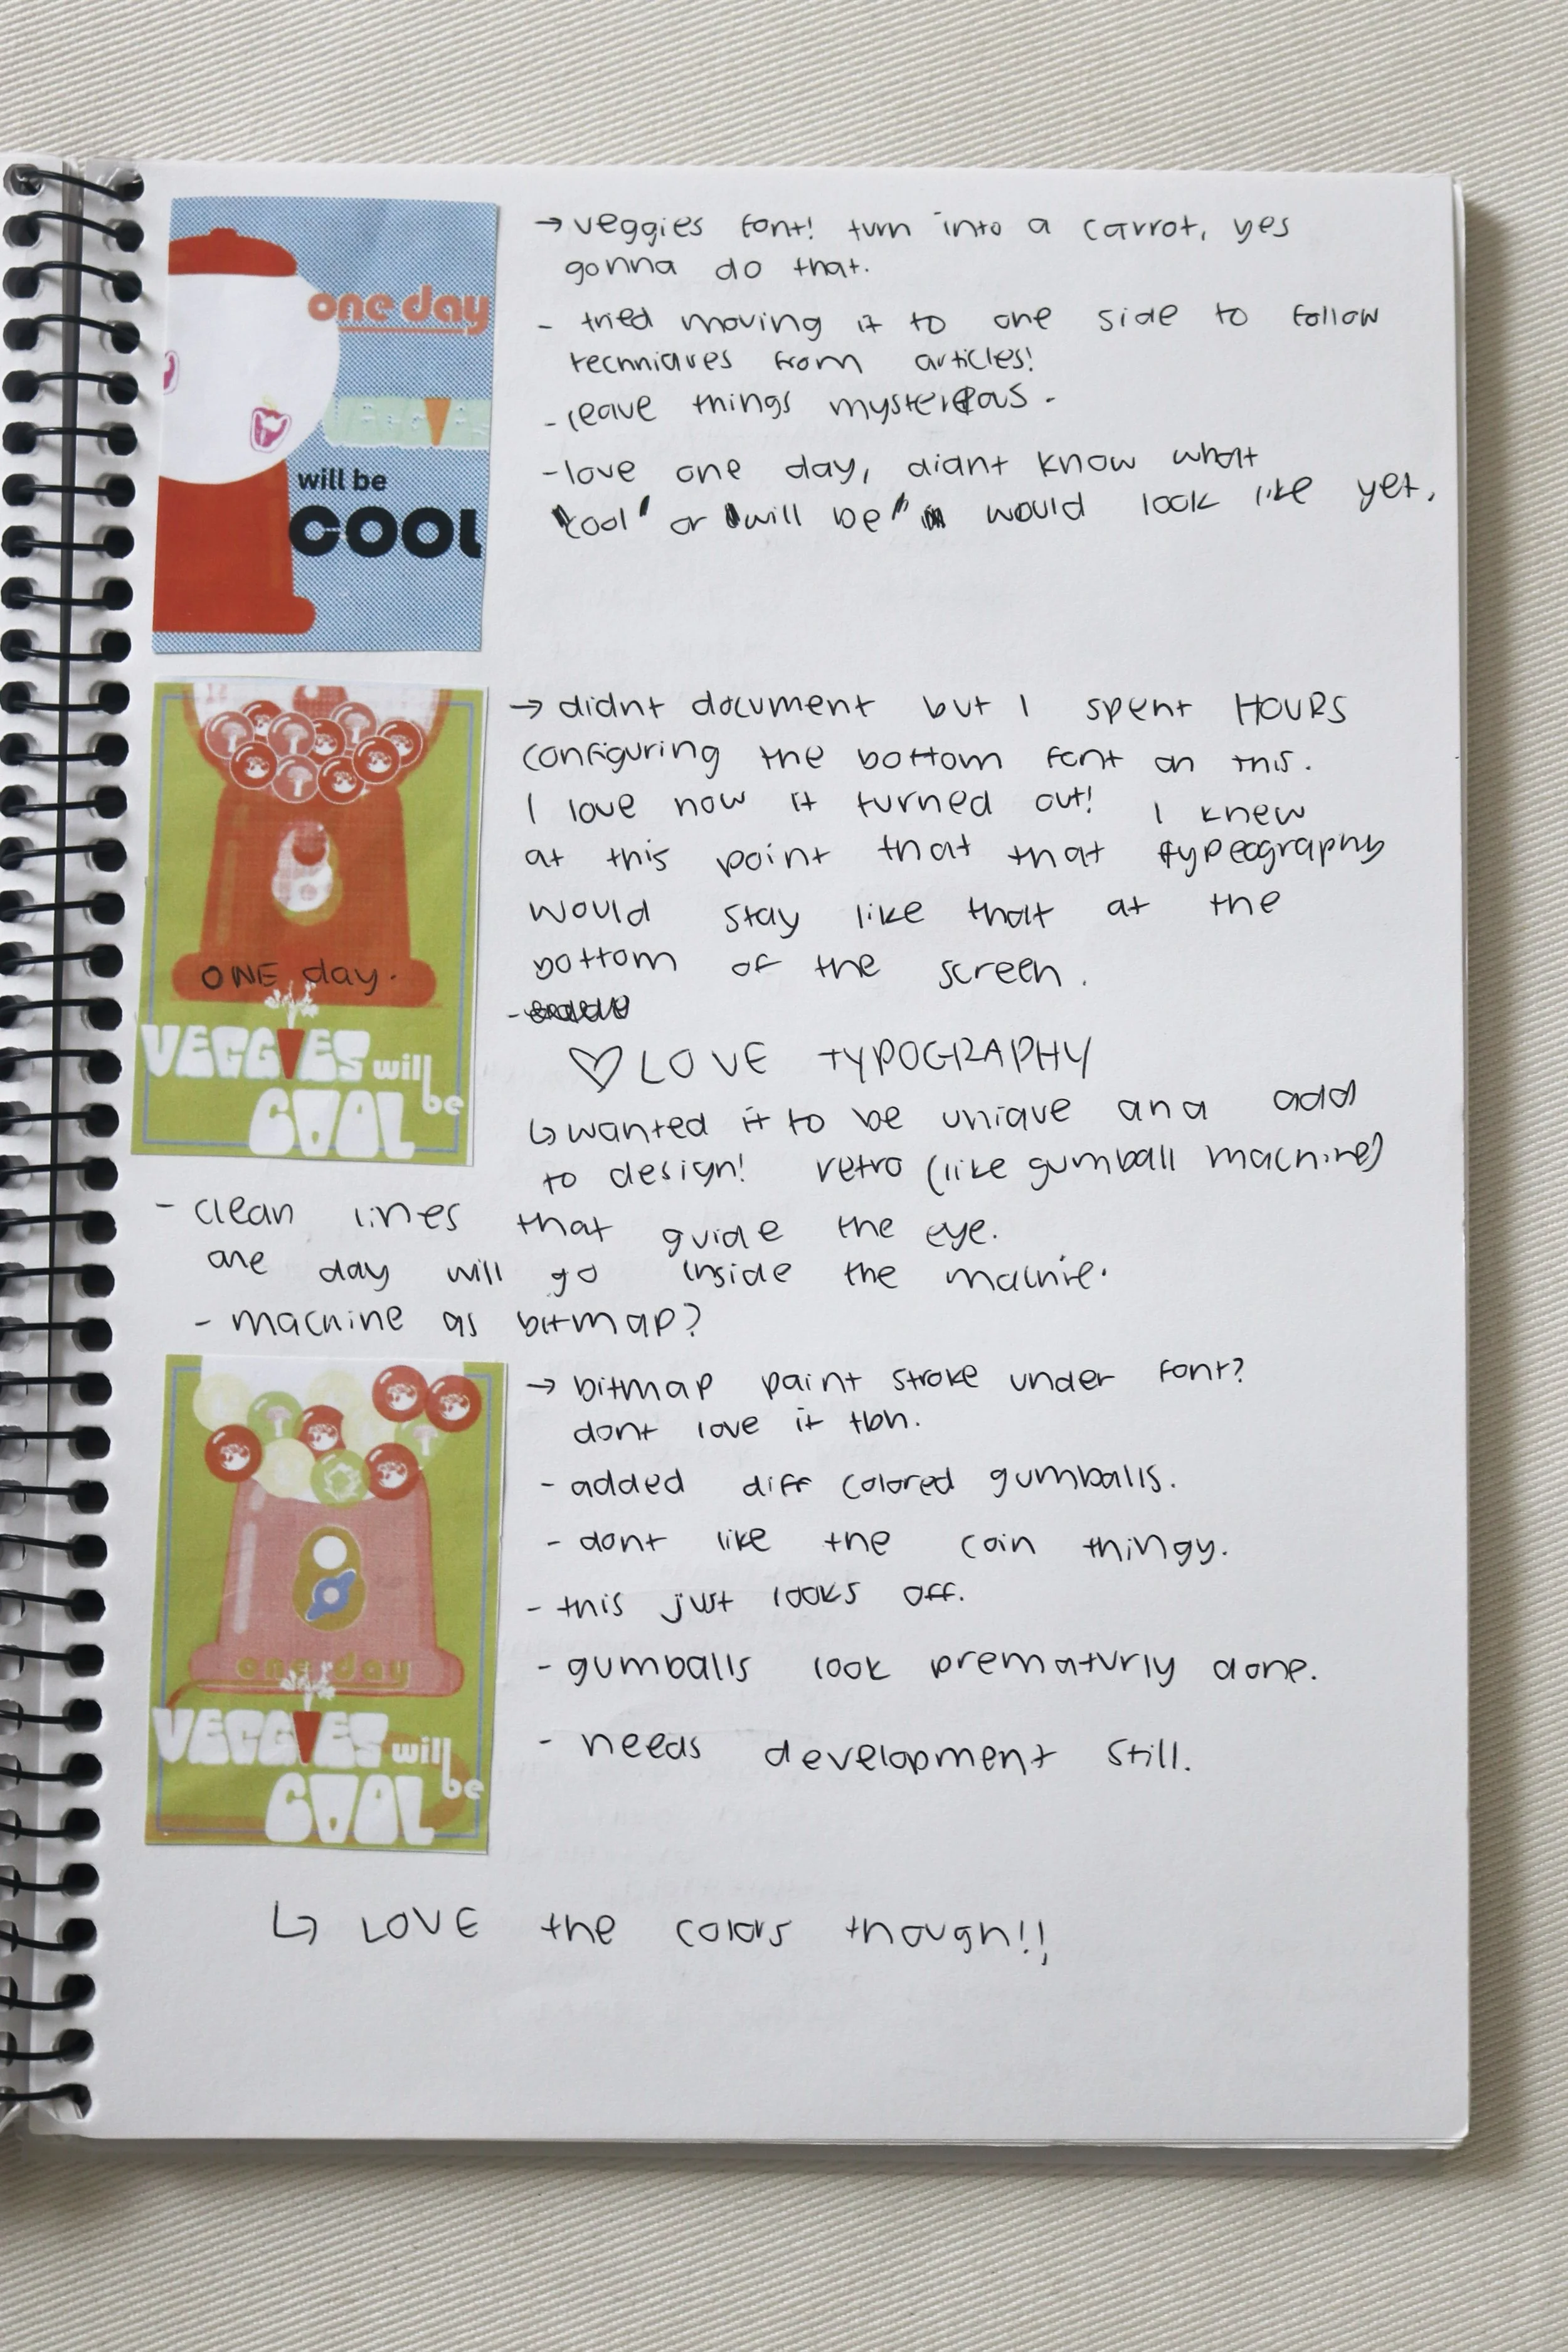 one day
will be
COOL
→ veggies font! turn into a carrot, yes
gonna do that.
- tried moving it to one side to follow
techniques from articles!
- leave things mysterious -
- love one day, didnt know what
"cool" or "will be" would look like yet.
ONE day.
VEGGIES will
be
COOL
→ didnt document but I spent HOURS
configuring the bottom font on this.
I love how it turned out! I knew
at this point that that typeography
would stay like that at the
bottom of the screen.
-
♡ LOVE TYPOGRAPHY
↳ wanted it to be unique and add
to design! retro (like gumball machine)
- clean lines that guide the eye.
one day will go inside the machine.
- machine as bitmap?
one day
VEGGIES will
be
COOL
→ bitmap paint stroke under font?
dont love it tbh.
- added diff colored gumballs.
- dont like the coin thingy.
- this just looks off.
- gumballs look prematurly done.
- needs development still.
↳ LOVE the colors though!!